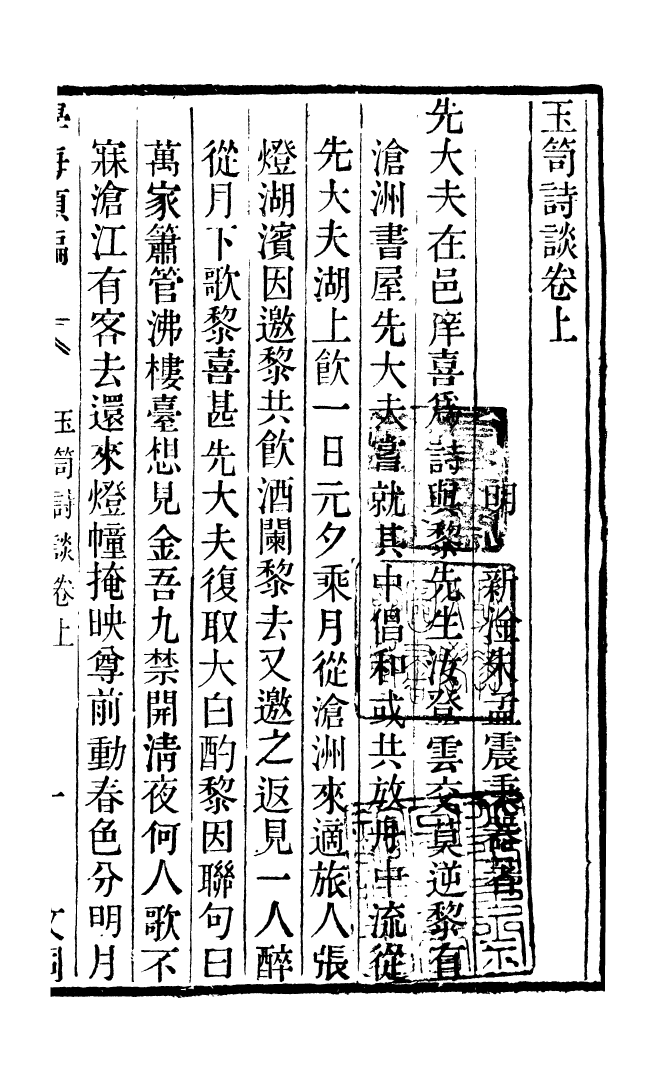 玉笥詩談卷上
明 新淦朱孟震秉器著
先大夫在邑庠喜爲詩與黎先生汝登雲交莫逆黎有
滄洲書屋先大夫嘗就其中倡和或共放舟中流從
先大夫湖上飮一日元夕乘月從滄洲來適旅人張
燈湖濱因邀黎共飮酒闌黎去又邀之返見一人醉
從月下歌黎喜甚先大夫復取大白酌黎因聯句曰
萬家簫管沸樓臺想見金吾九禁開淸夜何人歌不
寐滄江有客去還來燈幢掩映尊前動春色分明月
學海類編 玉笥詩談卷上 一